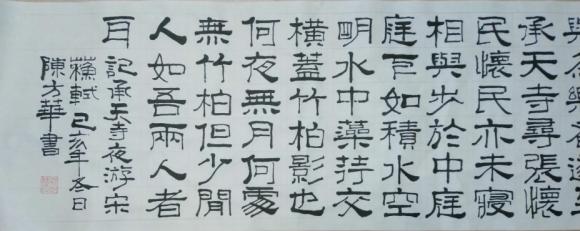 與為樂者遂至
承天寺尋張懷
民懷民亦未寢
相與步於中庭
庭下如積水空
眀水中藻荇交
橫蓋竹柏影也
何夜無月何處
無竹柏但少閒
人如吾兩人者
耳 記承天寺夜游宋
蘇軾 己亥年冬日
陳方華書